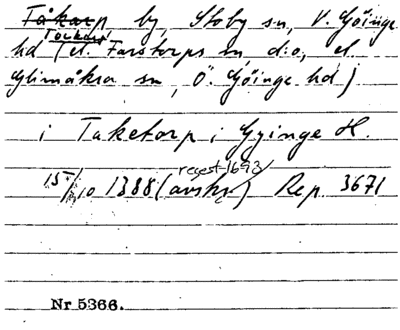 Tåkarp by, Stoby sn, V. Göinge
Tockarp
hd (el. Farstorps sn, d:o, el
Glimåkra sn, Ö. Göinge hd)
i Taketorp i Gyinge H.
regest 1693
15/10 1388 (avskr) Rep. 3671
Nr 5366.